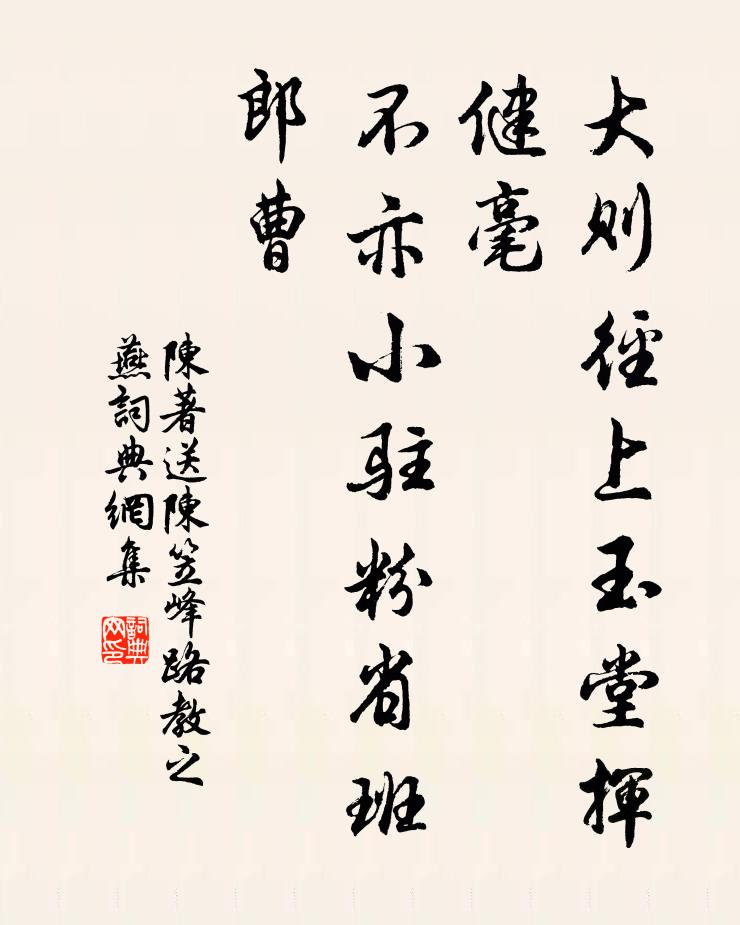 大則徑上玉堂揮
健毫
不亦小駐粉省班
郎曹
陳著送陳笠峰路教之
燕詞典網集
詞典網印